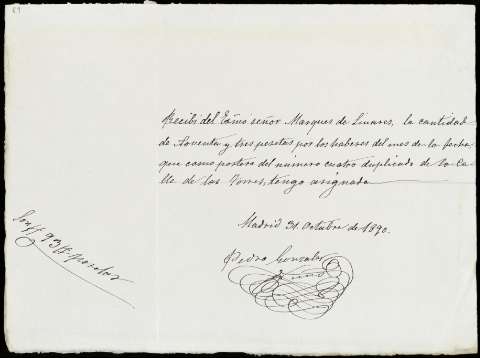 Recibí del Exmo señor Marques de Linares, la cantidad
de noventa y tres pesetas por los haberes del mes de la fecha
que como portero del número cuatro duplicado de la Ca-
lle de las Torres, tengo asignado
Madrid 31 Octubre de 1890.
Pedro Gonzalez
Son 93 pesetas